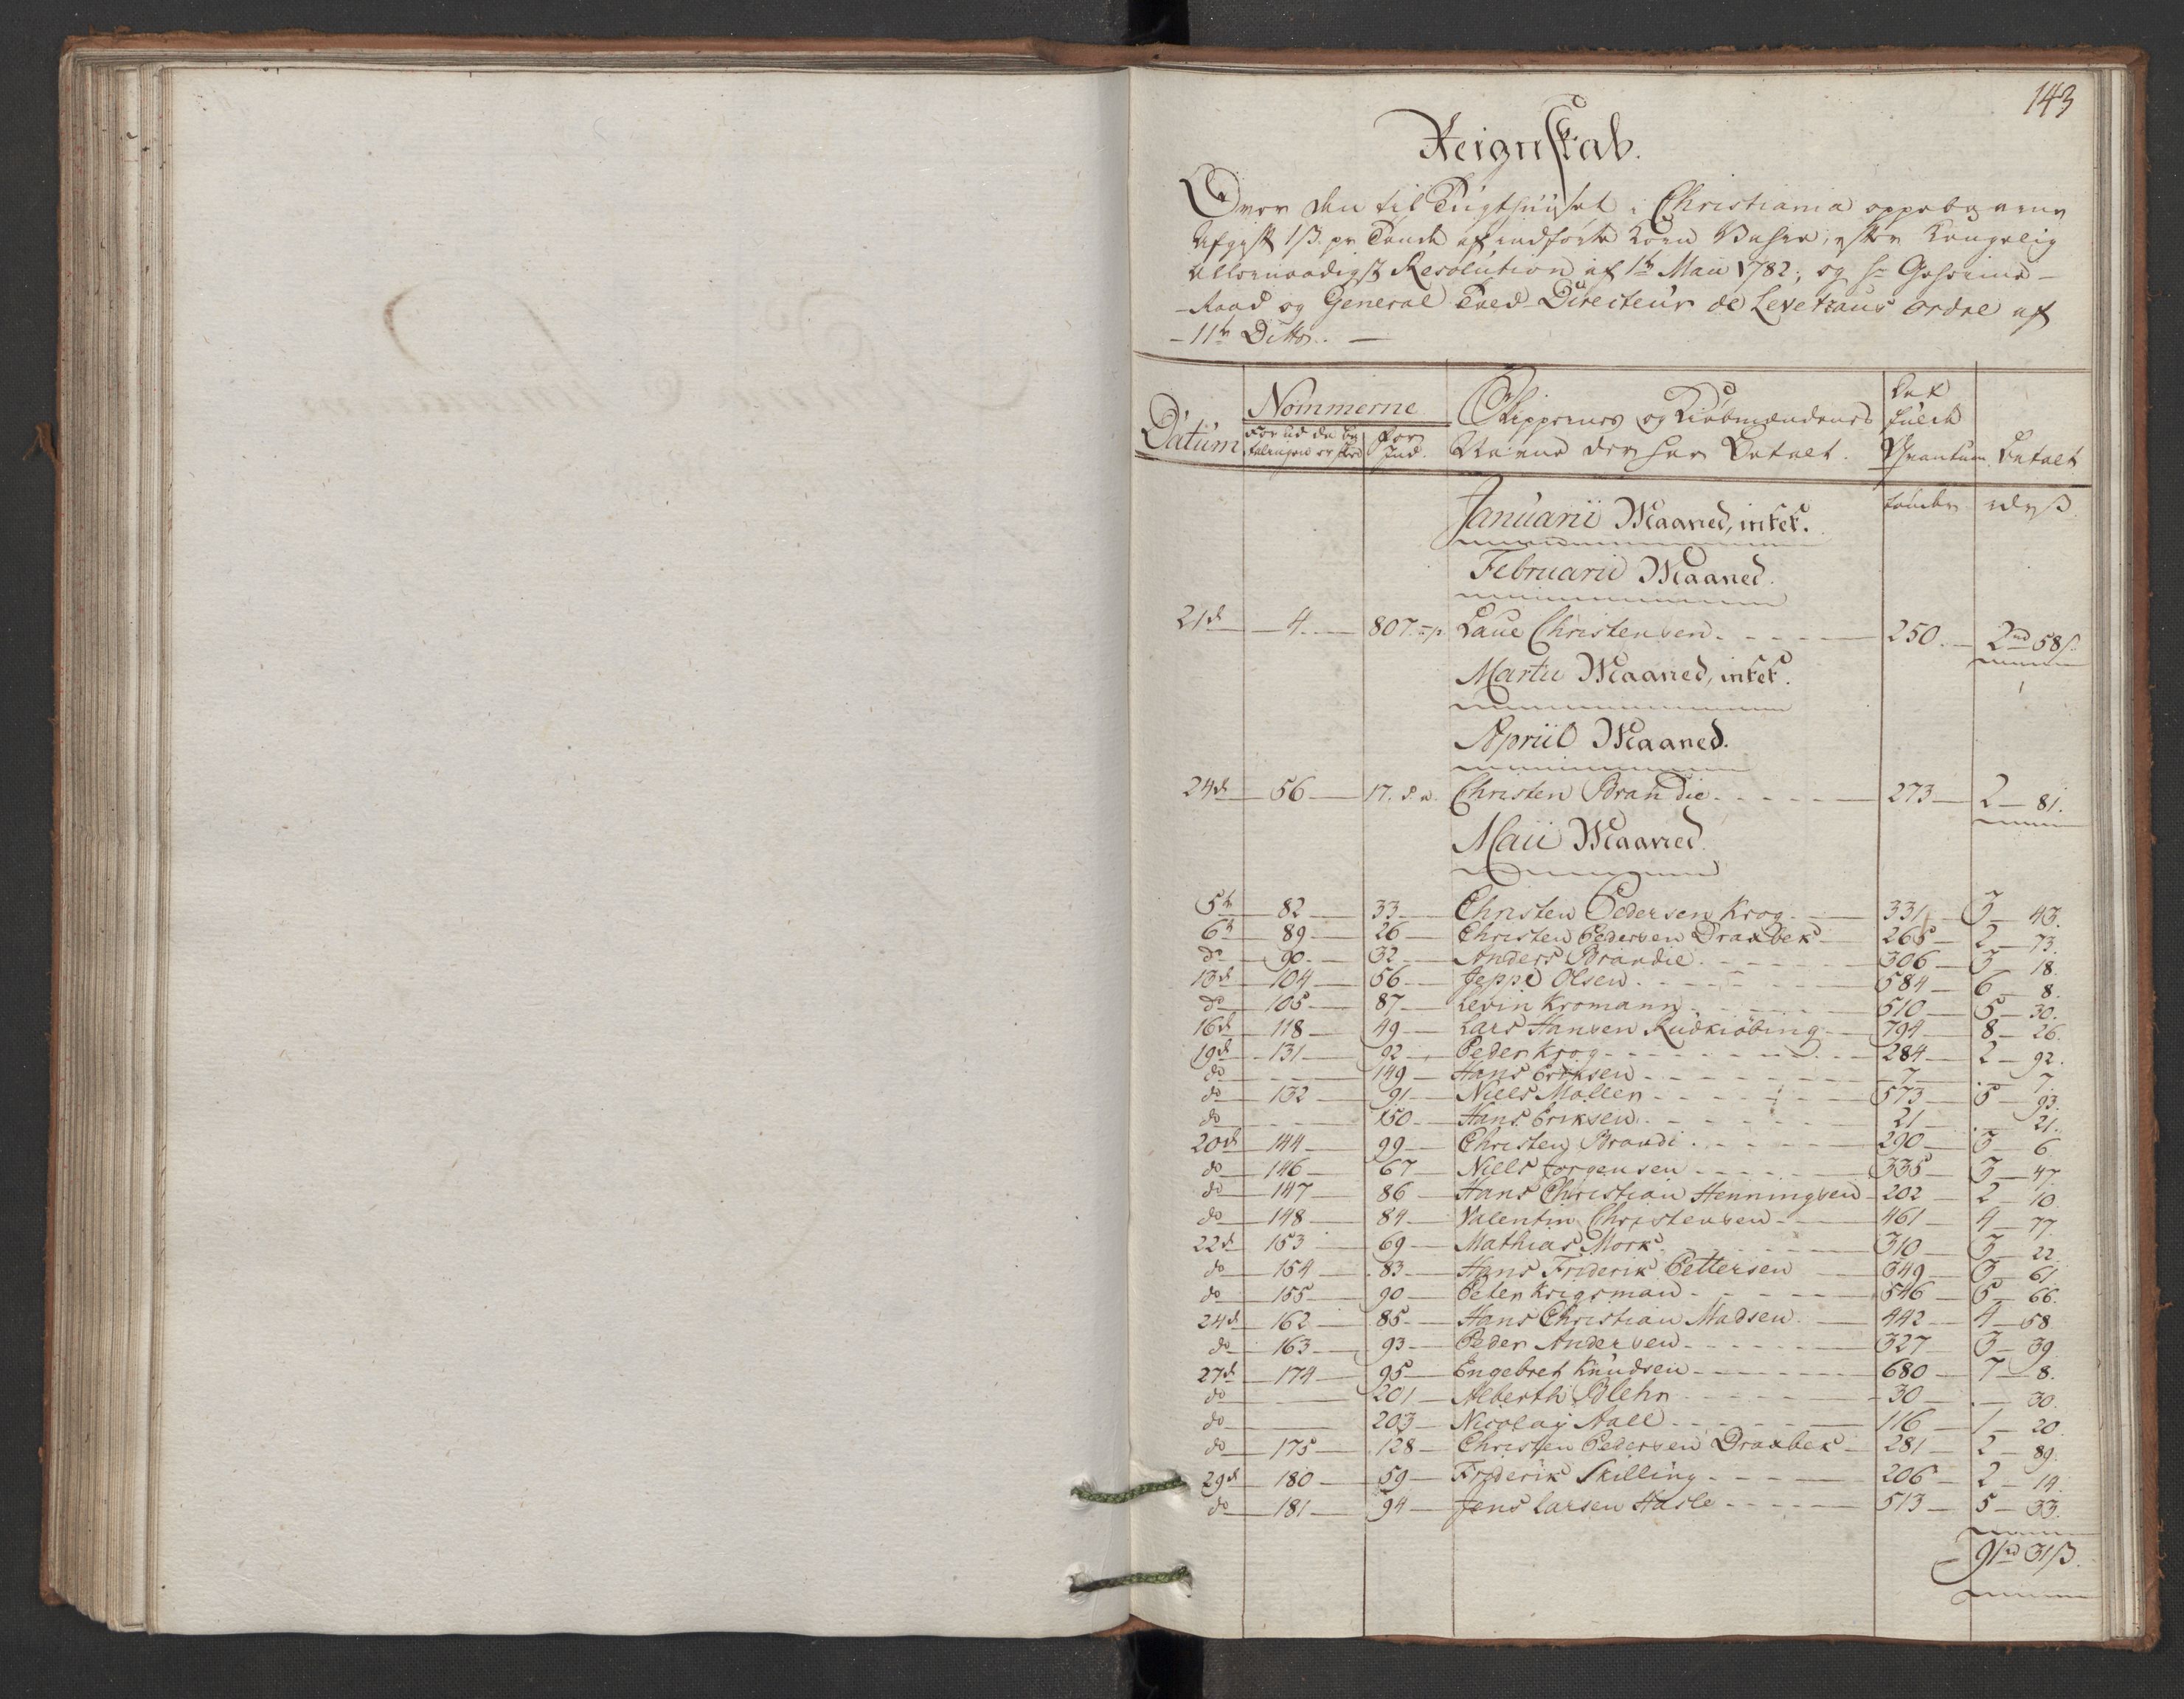 143
Reignskab.
Over den til Tugthuuset i Christiania oppebaarne
Afgift 1 ß. pr Tønde af indførte Korn Vahre, efter Kongelig
allernaadigst Resolution af 1te Maii 1782, og Hr Geheime-
-Raad og General Told-Directeur de Levetzaus Ordre af
-11te Ditto. —
Datum
Nommerne
For ud da be
talingen er skeed
For
Ind.
Skippernes og Kiøbmændenes
Navne der har Betalt.
Det
fulde
Qvantum
Betalt
tønder
rdr ß
Januarii Maaned, intet.
Februarii Maaned.
21d — 4. — 807. Laue Christensen. — 250. — 2rd 58ß
Martii Maaned, intet.
Apriil Maaned.
24d — 56 — 17. Christen Brandie. — 273 — 2 — 81.
Maii Maaned.
5te — 82 — 33 — Christen Pedersen Krog — 331 — 3 — 43.
6te — 89 — 26 — Christen Pedersen Draxbek — 265 — 2 — 73.
do — 90 — 32 — Anders Brandie — 306 — 3 — 18.
13d — 104 — 56 — Jeppe Olsen — 584 — 6 — 8.
do — 105 — 87 — Levin Kromann — 510 — 5 — 30.
16d — 118 — 49 — Lars Hansen Rudkiøbing — 794 — 8 — 26.
19d — 131 — 92 — Peder Krog — 284 — 2 — 92.
do — 149 — Hans Eriksen — 7 — 7.
do — 132 — 91 — Niels Møller — 573 — 5 — 93.
do — 150 — Hans Eriksen — 21 — 21.
20d — 144 — 99 — Christen Brandi — 290 — 3 — 6
do — 146 — 67 — Niels Jørgensen — 335 — 3 — 47
do — 147 — 86 — Hans Christian Henningsen — 202 — 2 — 10
do — 148 — 84 — Valentin Christensen — 461 — 4 — 77.
22d — 153 — 69 — Mathias Mork — 310 — 3 — 22
do — 154 — 83 — Hans Friderik Pettersen — 349 — 3 — 61
do — 155 — 90 — Peter Krigsman — 546 — 5 — 66.
24d — 162 — 85 — Hans Christian Madsen — 442 — 4 — 58
do — 163 — 93 — Peder Andersen — 327 — 3 — 39
27d — 174 — 95 — Engebret Knudsen — 680 — 7 — 8.
do — 201 — Alberth Blehr — 30 — 30.
do — 203 — Nicolay Aall — 116 — 1 — 20
do — 175 — 128 — Christen Pedersen Draxbek — 281 — 2 — 89.
29d — 180 — 59 — Friderik Skilling — 206 — 2 — 14.
do — 181 — 94 — Jens Larsen Hasle — 513 — 5 — 33.
91rd 31ß.